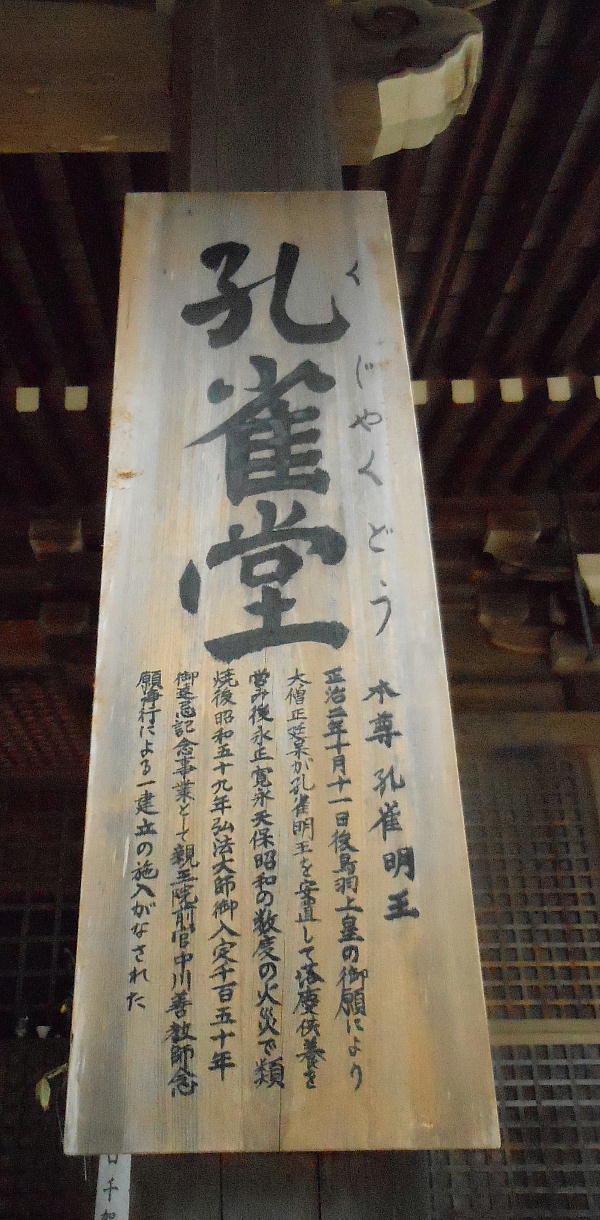 孔雀堂
くじゃくどう
本尊 孔雀明王
正治二年十月十一日後鳥羽上皇の御願により
大僧正延杲が孔雀明王を安置して落慶供養を
営み後永正寛永天保昭和の数度の火災で類
焼後昭和五十九年弘法大師御入定千百五十年
御遠忌記念事業とて親王院前官中川善教師念
願浄行による一建立の施入がなされた
口千